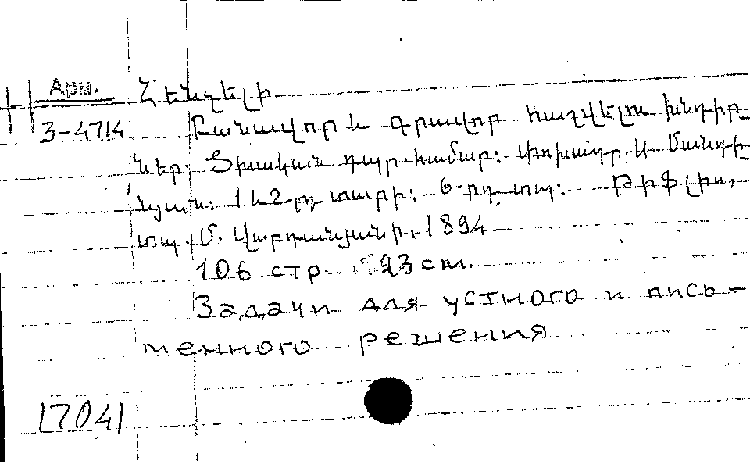 Арм. Հենցելի
3-4714 Բանավոր և գրավոր հաշվելու խնդիր
ներ: Տիպական դպր. համար: Փոխադր. Ա. Մանդի
նյան: 1 և 2-րդ տարի: 6-րդ տպ: Թիֆլիս,
տպ. Մ. Վարդանյանի, 1894
106 стр. 23 см.
Задачи для устного и пись-
менного решения
17041